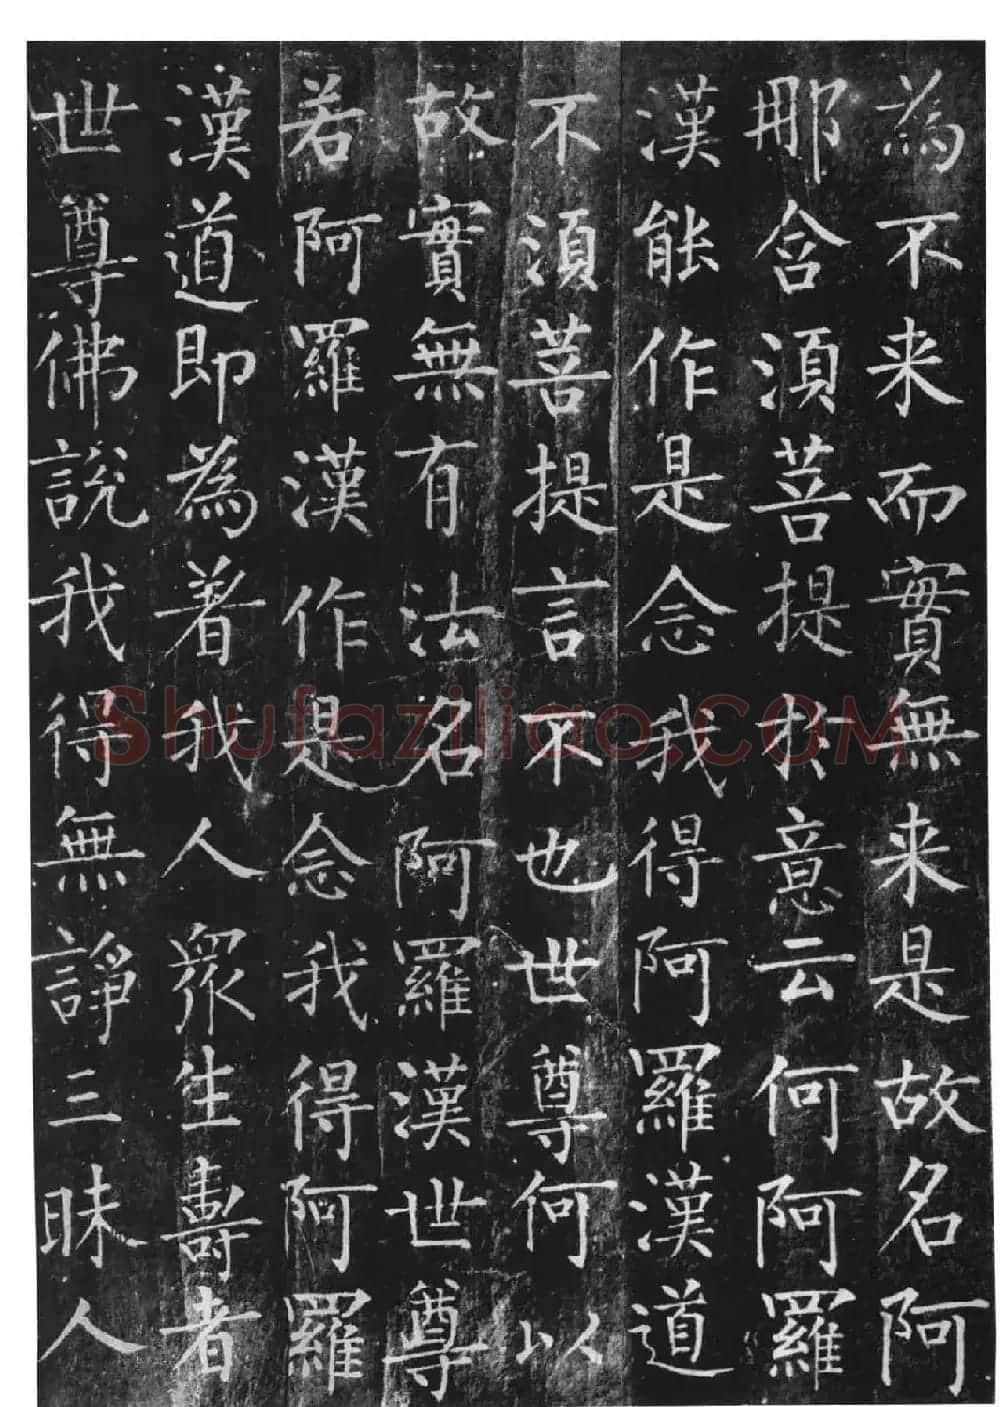 為不来而實無来是故名阿
那含須菩提於意云何阿羅
漢能作是念我得阿羅漢道
不須菩提言不也世尊何以
故實無有法名阿羅漢世尊
若阿羅漢作是念我得阿羅
漢道即為著我人眾生壽者
世尊佛說我得無諍三昧人
Shufaziliao.COM